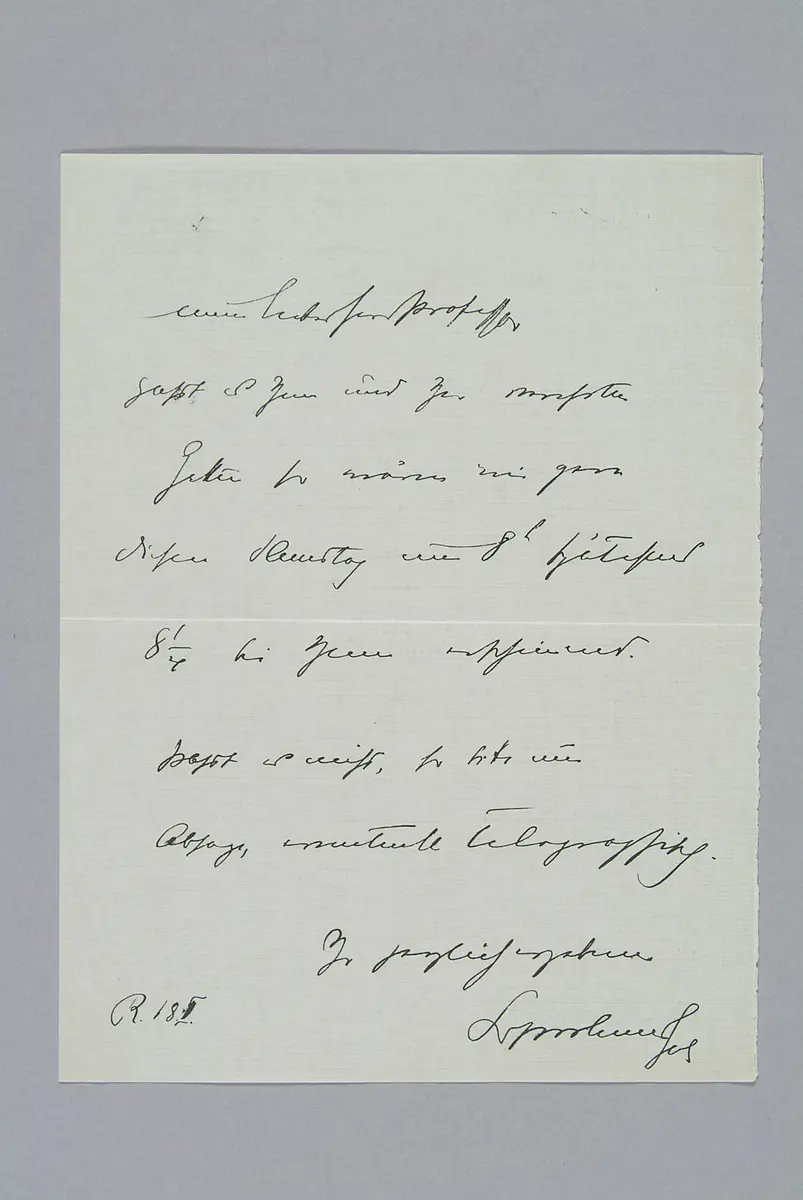 mein lieber Herr Professor
passt es Ihnen und Ihrer verehrten
Gattin so wären wir gern
diesen Dienstag um 8h spätestens
8 1/4 bei Ihnen erscheinend.
passt es nicht, so bitte um
Absage, eventuell telegraphisch.
Ihr herzlich ergebener
R. 18 I.